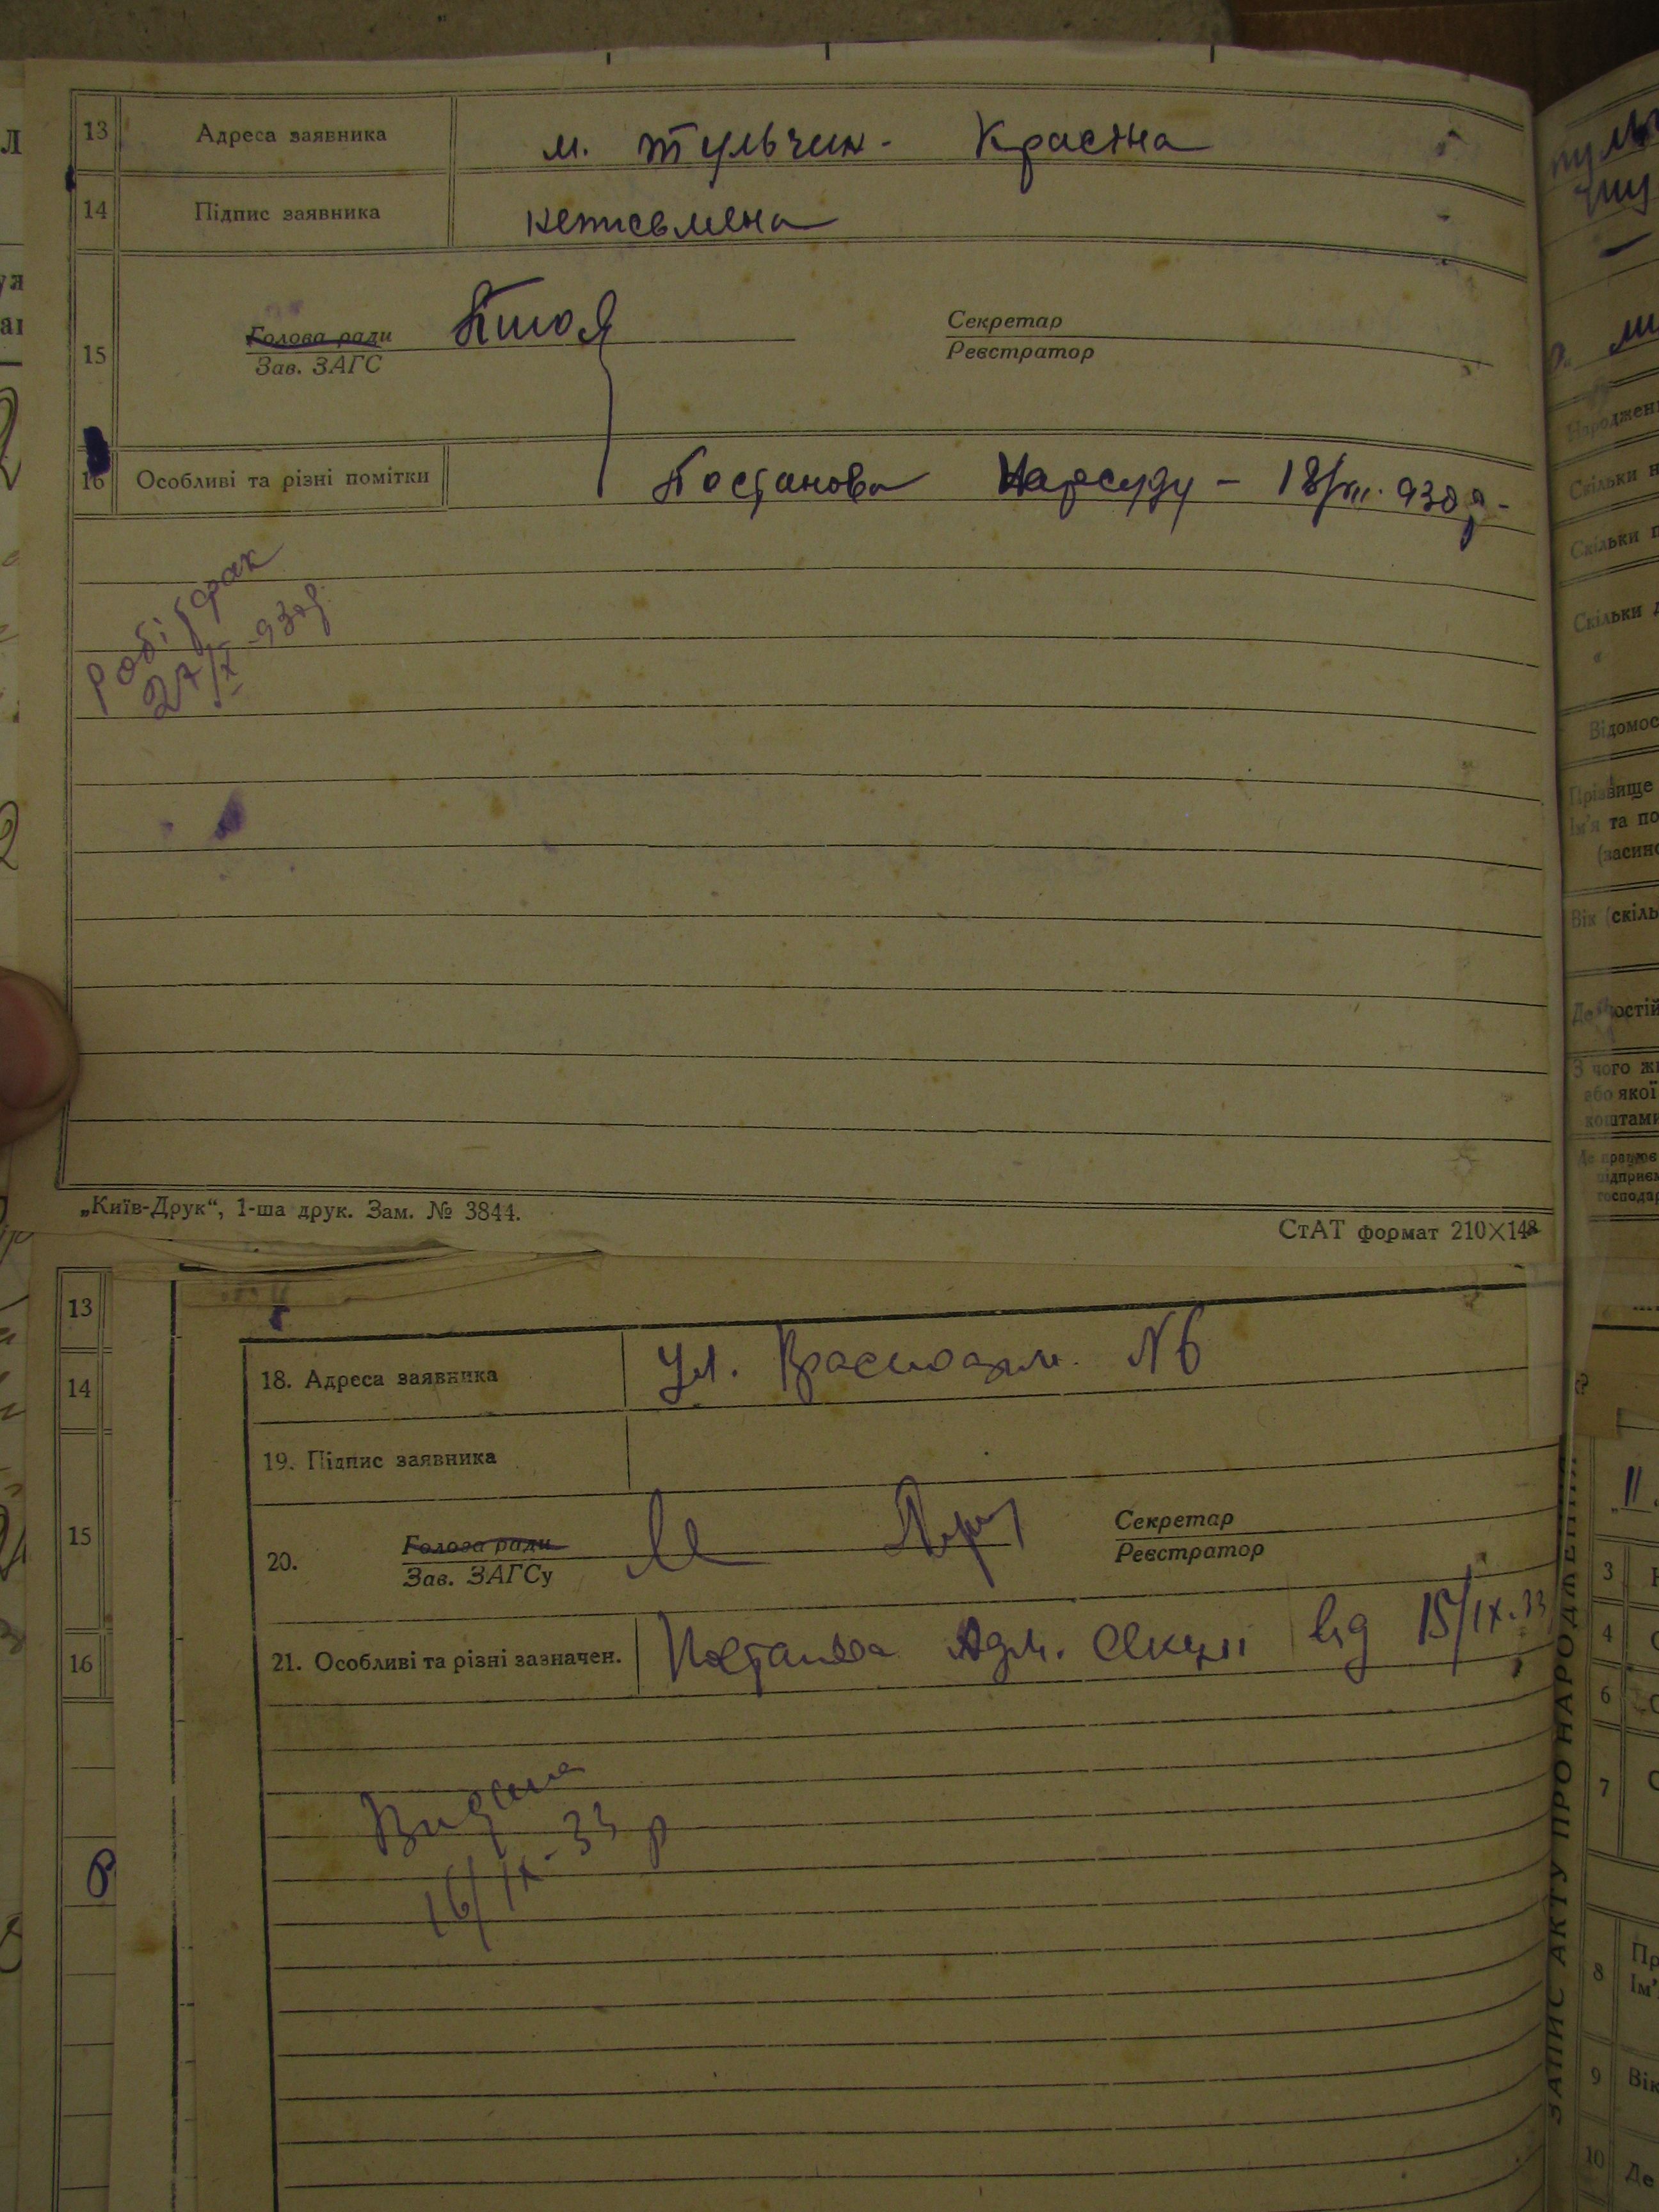 13 Адреса заявника м. Тульчин. Красіна
14 Підпис заявника неписьмена
15 Голова ради
Зав. ЗАГС
Секретар
Реєстратор
16 Особливі та різні помітки Постанова Нарсуду – 18/VII. 930 р.
27/X 930 р
„Київ-Друк“, 1-ша друк. Зам. № 3844.
СтАТ формат 210×148
13
14
15
16
18. Адреса заявника Ул. Красноарм. N 6
19. Підпис заявника
20. Голова ради
Зав. ЗАГСу
Секретар
Реєстратор
21. Особливі та різні зазначен. Постанова Адм. Секції від 15/IX-33
Видана
16/IX-33 р
ЗАПИС АКТУ ПРО НАРОДЖЕННЯ
Скільки
Скільки
Скільки
Прізвище
Ім'я та по
Вік (скіль
З чого
або якої
коштами
„11
3
4
6
7
8 Пр
Ім'
9 Вік
10 Де